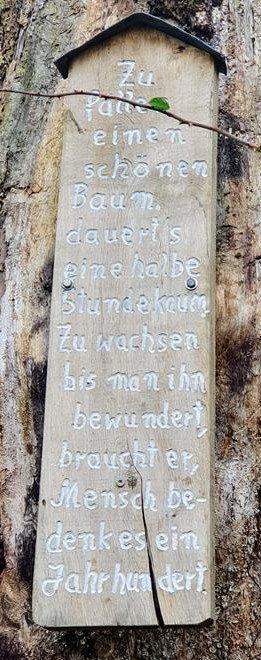 Zu
fälle
einen
schönen
Baum.
dauert's
eine halbe
Stunde kaum,
Zu wachsen
bis man ihn
bewundert,
braucht er,
Mensch be-
denk es ein
Jahrhundert.